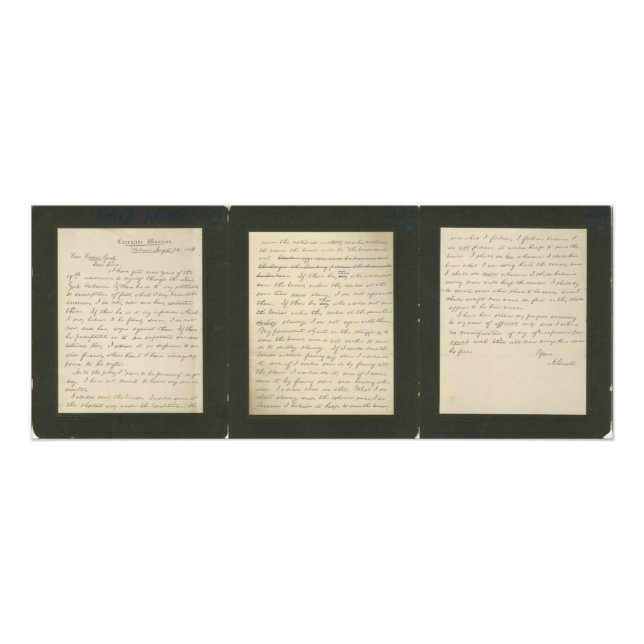 Executive Mansion,
Washington, August 22, 1862
Hon. Horace Greely:
Dear Sir
I have just read yours of the
19th addressed to myself through the New-
York Tribune. If there be in it any statements,
or assumptions of fact, which I may know to be
erroneous, I do not, now and here, controvert
them. If there be in it any inferences which
I may believe to be falsely drawn, I do not
now and here, argue against them. If there
be perceptable in it an impatient and dic-
tatorial tone, I waive it in deference to an
old friend, whose heart I have always sup-
posed to be right.
As to the policy I "seem to be pursuing" as you
say, I have not meant to leave any one in
doubt.
I would save the Union. I would save it
the shortest way under the Constitution. The
sooner the national authority can be restored,
the nearer the Union will be "the Union as it
was." If there be those who would not
save the Union, unless they could at the
same time save slavery, I do not agree with
them. If there be those who would not save
the Union unless they could at the same time
destroy slavery, I do not agree with them.
My paramount object in this struggle is to
save the Union, and is not either to save
or to destroy slavery. If I could save the
Union without freeing any slave I would do
it, and if I could save it by freeing all
the slaves I would do it; and if I could
save it by freeing some and leaving others
alone I would also do that. What I do
about slavery, and the colored race, I do
because I believe it helps to save the Union;
and what I forbear, I forbear because I
do not believe it would help to save the
Union. I shall do less whenever I shall be-
lieve what I am doing hurts the cause, and
I shall do more whenever I shall believe
doing more will help the cause. I shall try
to correct errors when shown to be errors; and I
shall adopt new views so fast as they shall
appear to be true views.
I have here stated my purpose according
to my view of official duty; and I intend
no modification of my oft-expressed per-
sonal wish that all men everywhere could
be free.
Yours,
A. Lincoln